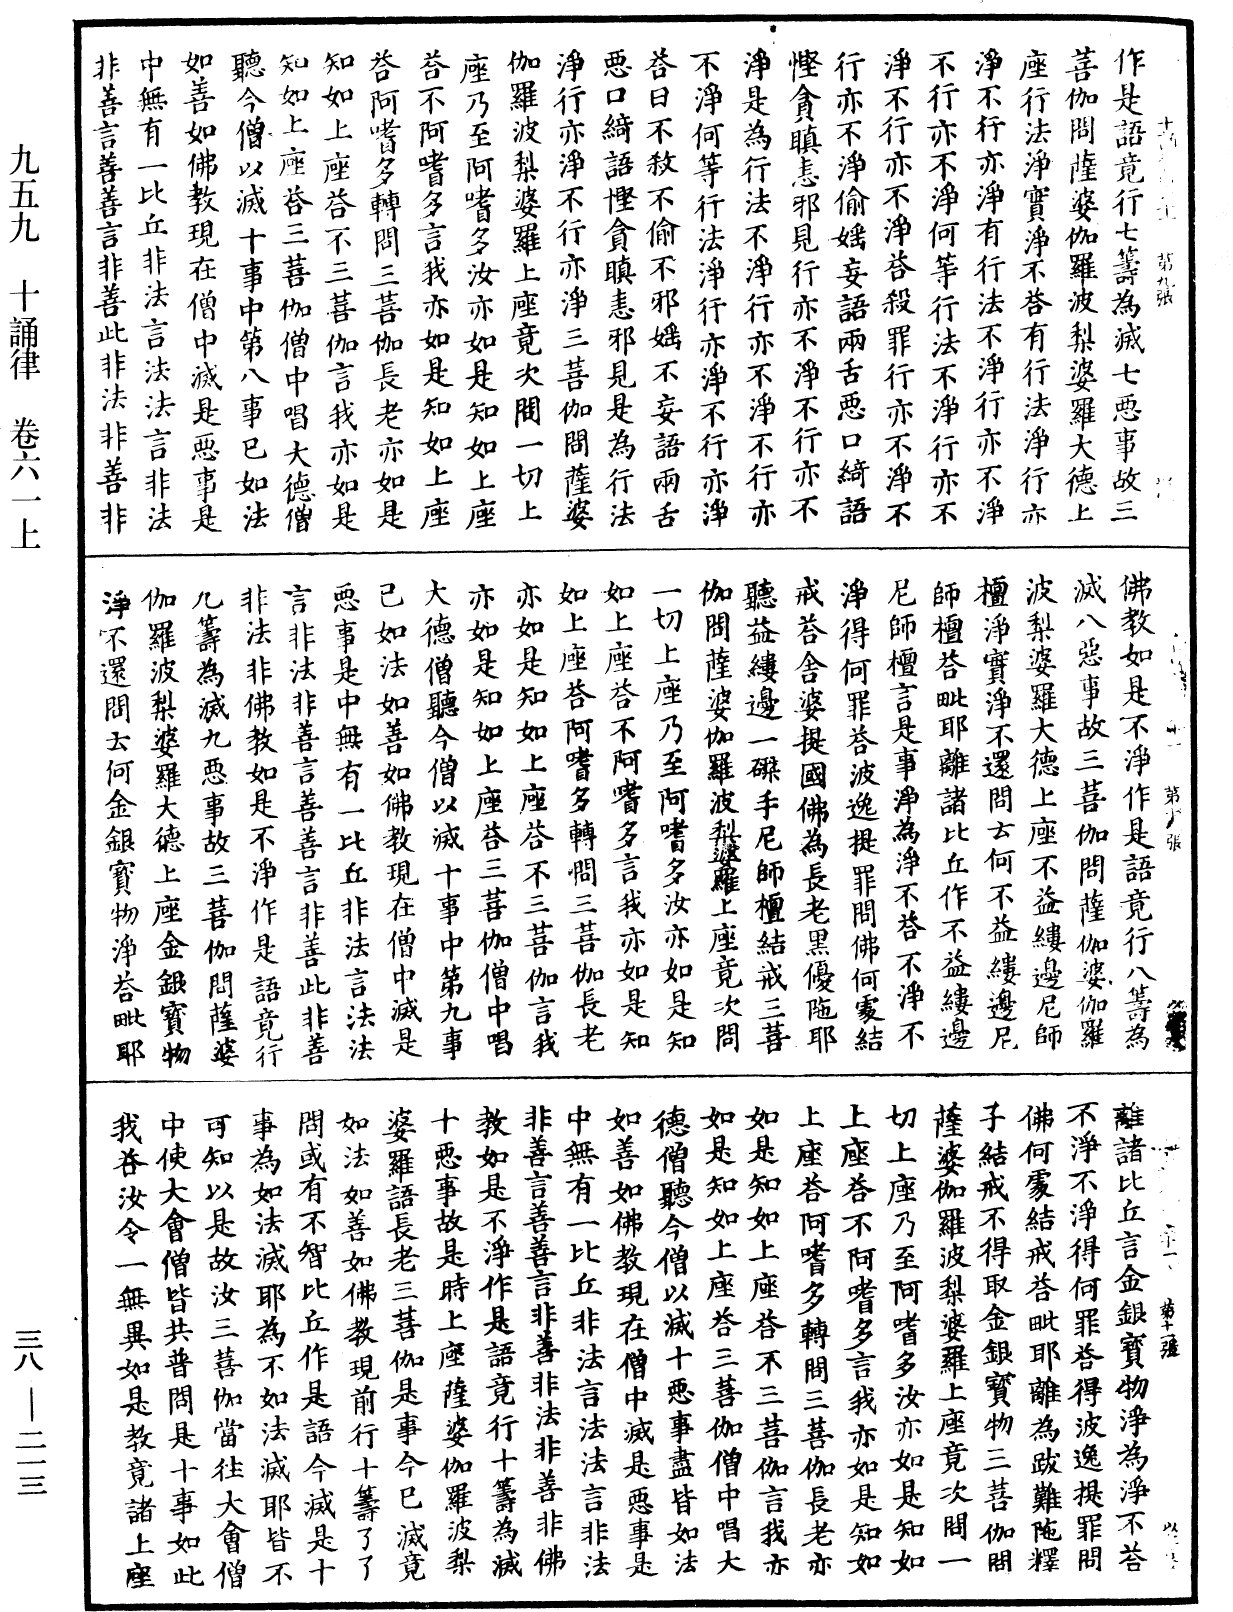 作是語竟行七籌為滅七惡事故三
菩伽問薩婆伽羅波梨婆羅大德上
座行法淨實淨不荅有行法淨行亦
淨不行亦淨有行法不淨行亦不淨
不行亦不淨何等行法不淨行亦不
淨不行亦不淨荅殺罪行亦不淨不
行亦不淨偷婬妄語兩舌惡口綺語
慳貪瞋恚邪見行亦不淨不行亦不
淨是為行法不淨行亦不淨不行亦
不淨何等行法淨行亦淨不行亦淨
荅曰不煞不偷不邪婬不妄語兩舌
惡口綺語慳貪瞋恚邪見是為行法
淨行亦淨不行亦淨三菩伽問薩婆
伽羅波梨婆羅上座竟次問一切上
座乃至阿嗜多汝亦如是知如上座
荅不阿嗜多言我亦如是知如上座
荅阿嗜多轉問三菩伽長老亦如是
知如上座荅不三菩伽言我亦如是
知如上座荅三菩伽僧中唱大德僧
聽今僧以滅十事中第八事已如法
如善如佛教現在僧中滅是惡事是
中無有一比丘非法言法法言非法
非善言善善言非善此非法非善非
第九張
佛教如是不淨作是語竟行八籌為
滅八惡事故三菩伽問薩伽婆伽羅
波梨婆羅大德上座不益縷邊尼師
檀淨實淨不還問云何不益縷邊尼
師檀荅毗耶離諸比丘作不益縷邊
尼師檀言是事淨為淨不荅不淨不
淨得何罪荅波逸提罪問佛何處結
戒荅舍婆提國佛為長老黑優陁耶
聽益縷邊一磔手尼師檀結戒三菩
伽問薩婆伽羅波梨婆羅上座竟次問
一切上座乃至阿嗜多汝亦如是知
如上座荅不阿嗜多言我亦如是知
如上座荅阿嗜多轉問三菩伽長老
亦如是知如上座荅不三菩伽言我
亦如是知如上座荅三菩伽僧中唱
大德僧聽今僧以滅十事中第九事
已如法如善如佛教現在僧中滅是
惡事是中無有一比丘非法言法法
言非法非善言善善言非善此非善
非法非佛教如是不淨作是語竟行
九籌為滅九惡事故三菩伽問薩婆
伽羅波梨婆羅大德上座金銀寶物
淨不還問云何金銀寶物淨荅毗耶
第十張
離諸比丘言金銀寶物淨為淨不荅
不淨不淨得何罪荅得波逸提罪問
佛何處結戒荅毗耶離為跋難陁釋
子結戒不得取金銀寶物三菩伽問
薩婆伽羅波梨婆羅上座竟次問一
切上座乃至阿嗜多汝亦如是知如
上座荅不阿嗜多言我亦如是知如
上座荅阿嗜多轉問三菩伽長老亦
如是知如上座荅不三菩伽言我亦
如是知如上座荅三菩伽僧中唱大
德僧聽今僧以滅十惡事盡皆如法
如善如佛教現在僧中滅是惡事是
中無有一比丘非法言法法言非法
非善言善善言非善非法非善非佛
教如是不淨作是語竟行十籌為滅
十惡事故是時上座薩婆伽羅波梨
婆羅語長老三菩伽是事今已滅竟
如法如善如佛教現前行十籌了了
問或有不智比丘作是語今滅是十
事為如法滅耶為不如法滅耶皆不
可知以是故汝三菩伽當往大會僧
中使大會僧皆共普問是十事如此
我荅汝令一無異如是教竟諸上座
第十一張
九五九　十誦律　卷六一上
三八—二一三